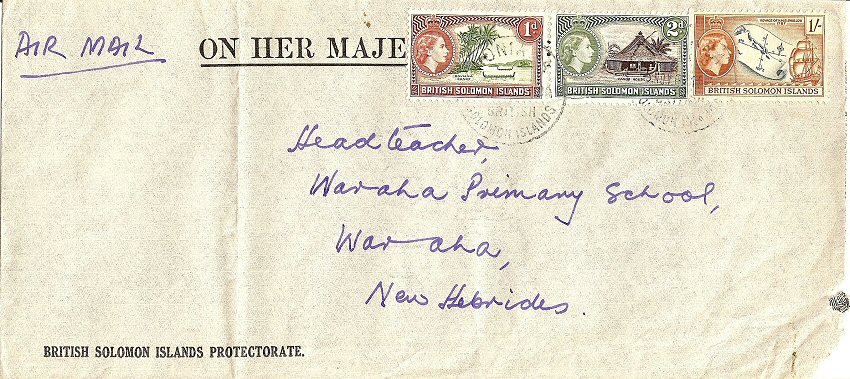 AIR MAIL
ON HER MAJE
1d
BRITISH SOLOMON ISLANDS
2d
BRITISH SOLOMON ISLANDS
1/-
BRITISH SOLOMON ISLANDS
BRITISH
SOLOMON ISLANDS
Headteacher,
Waraha Primary School,
Waraha,
New Hebrides.
BRITISH SOLOMON ISLANDS PROTECTORATE.